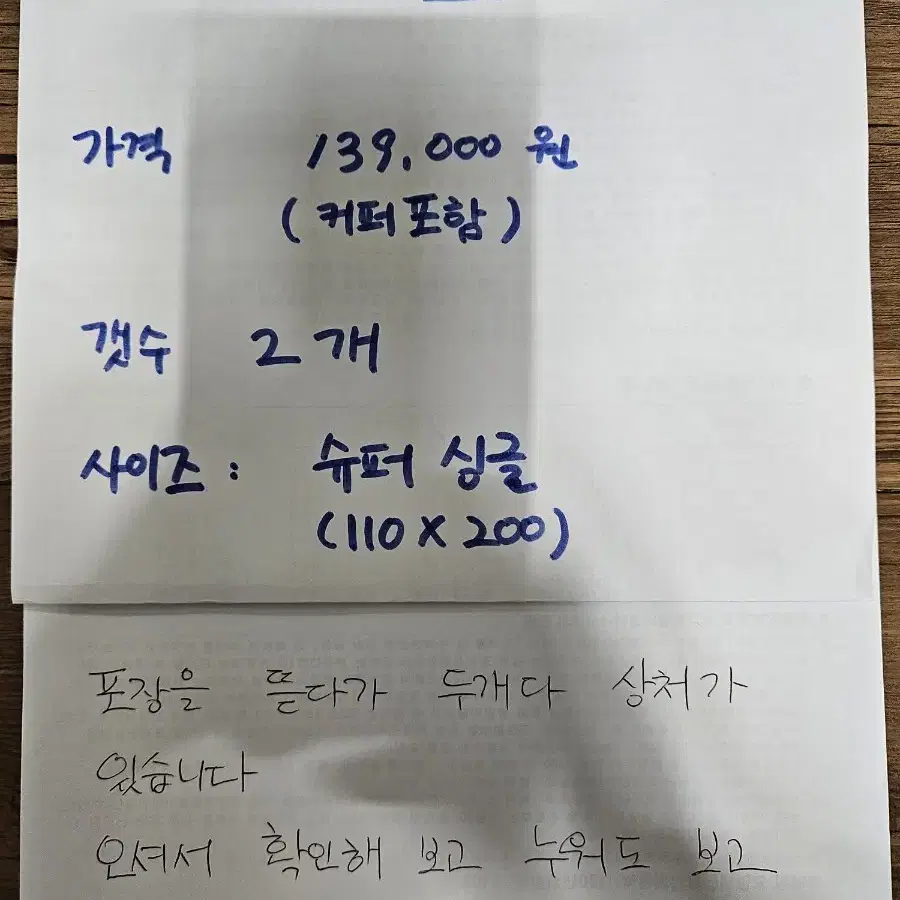 가격 139,000 원
(커퍼 포함)
갯수 2 개
사이즈 : 슈퍼 싱글
(110 X 200)
포장을 뜯다가 두개다 상처가
있습니다
오셔서 확인해 보고 누워도 보고